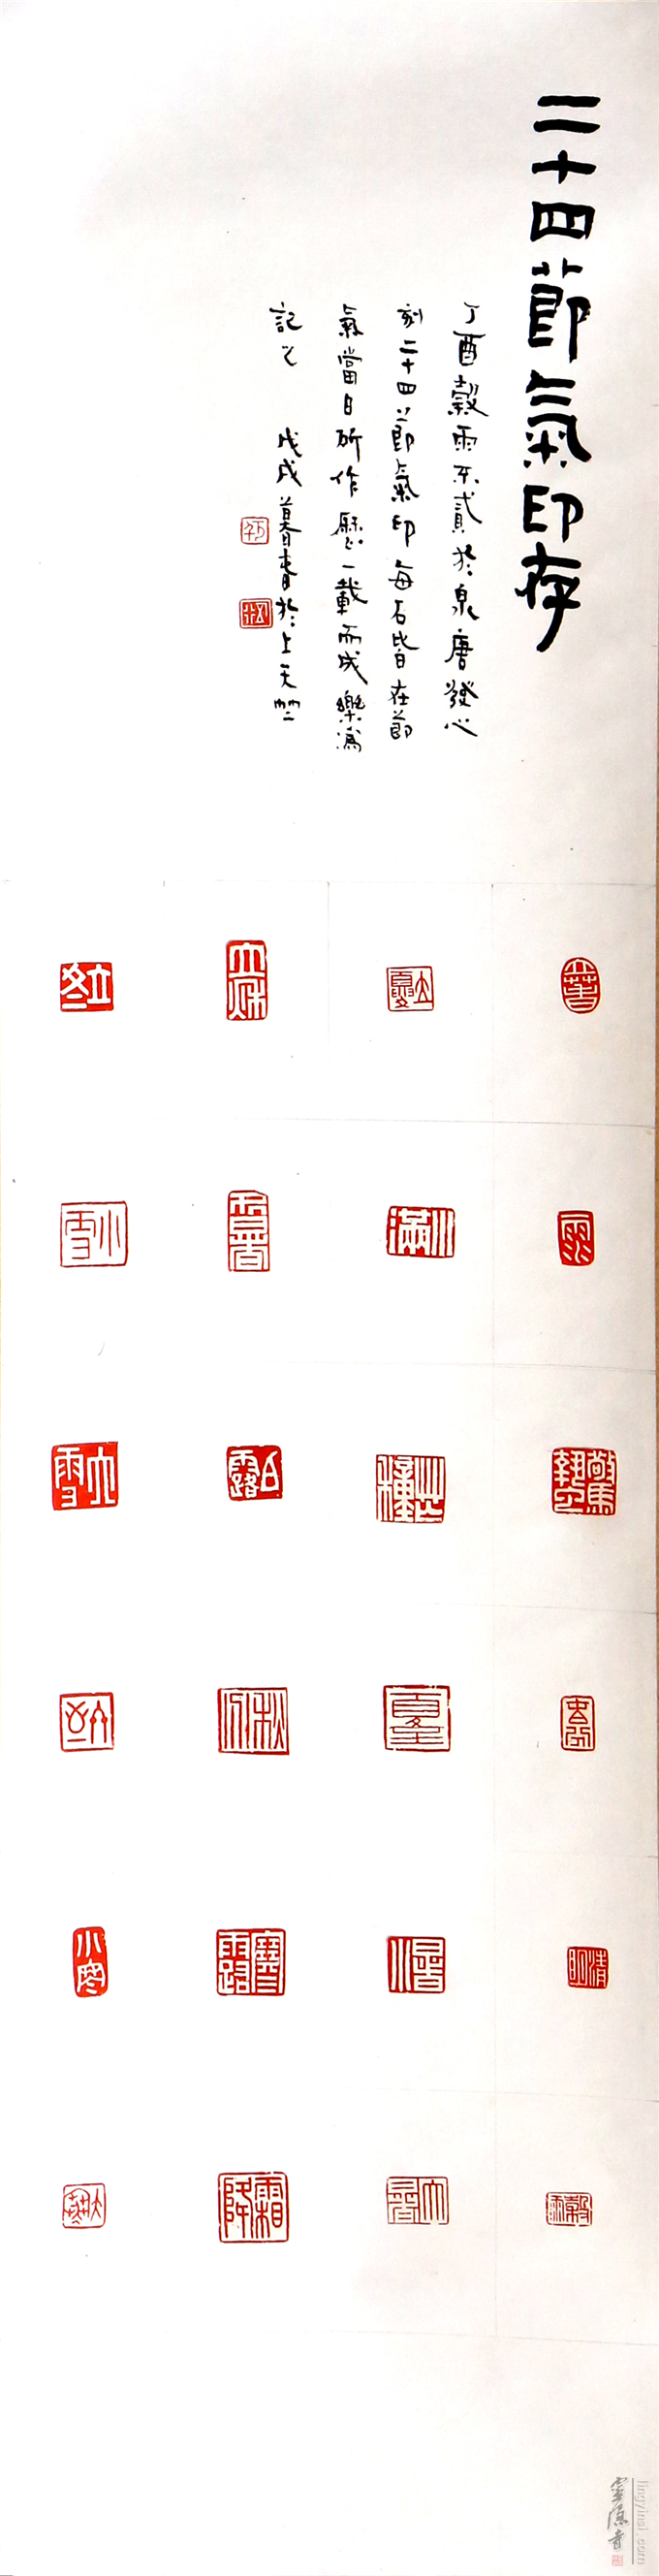 二十四節氣印存
丁酉穀雨不貳於泉唐發心
刻二十四節氣印每石皆在節
氣當日所作歷一載而成樂爲
記之 戊戌暮春於上天竺
立春
雨水
驚蟄
春分
清明
穀雨
立夏
小滿
芒種
夏至
小暑
大暑
立秋
處暑
白露
秋分
寒露
霜降
立冬
小雪
大雪
冬至
小寒
大寒
靈隱寺
lingyinsi.com